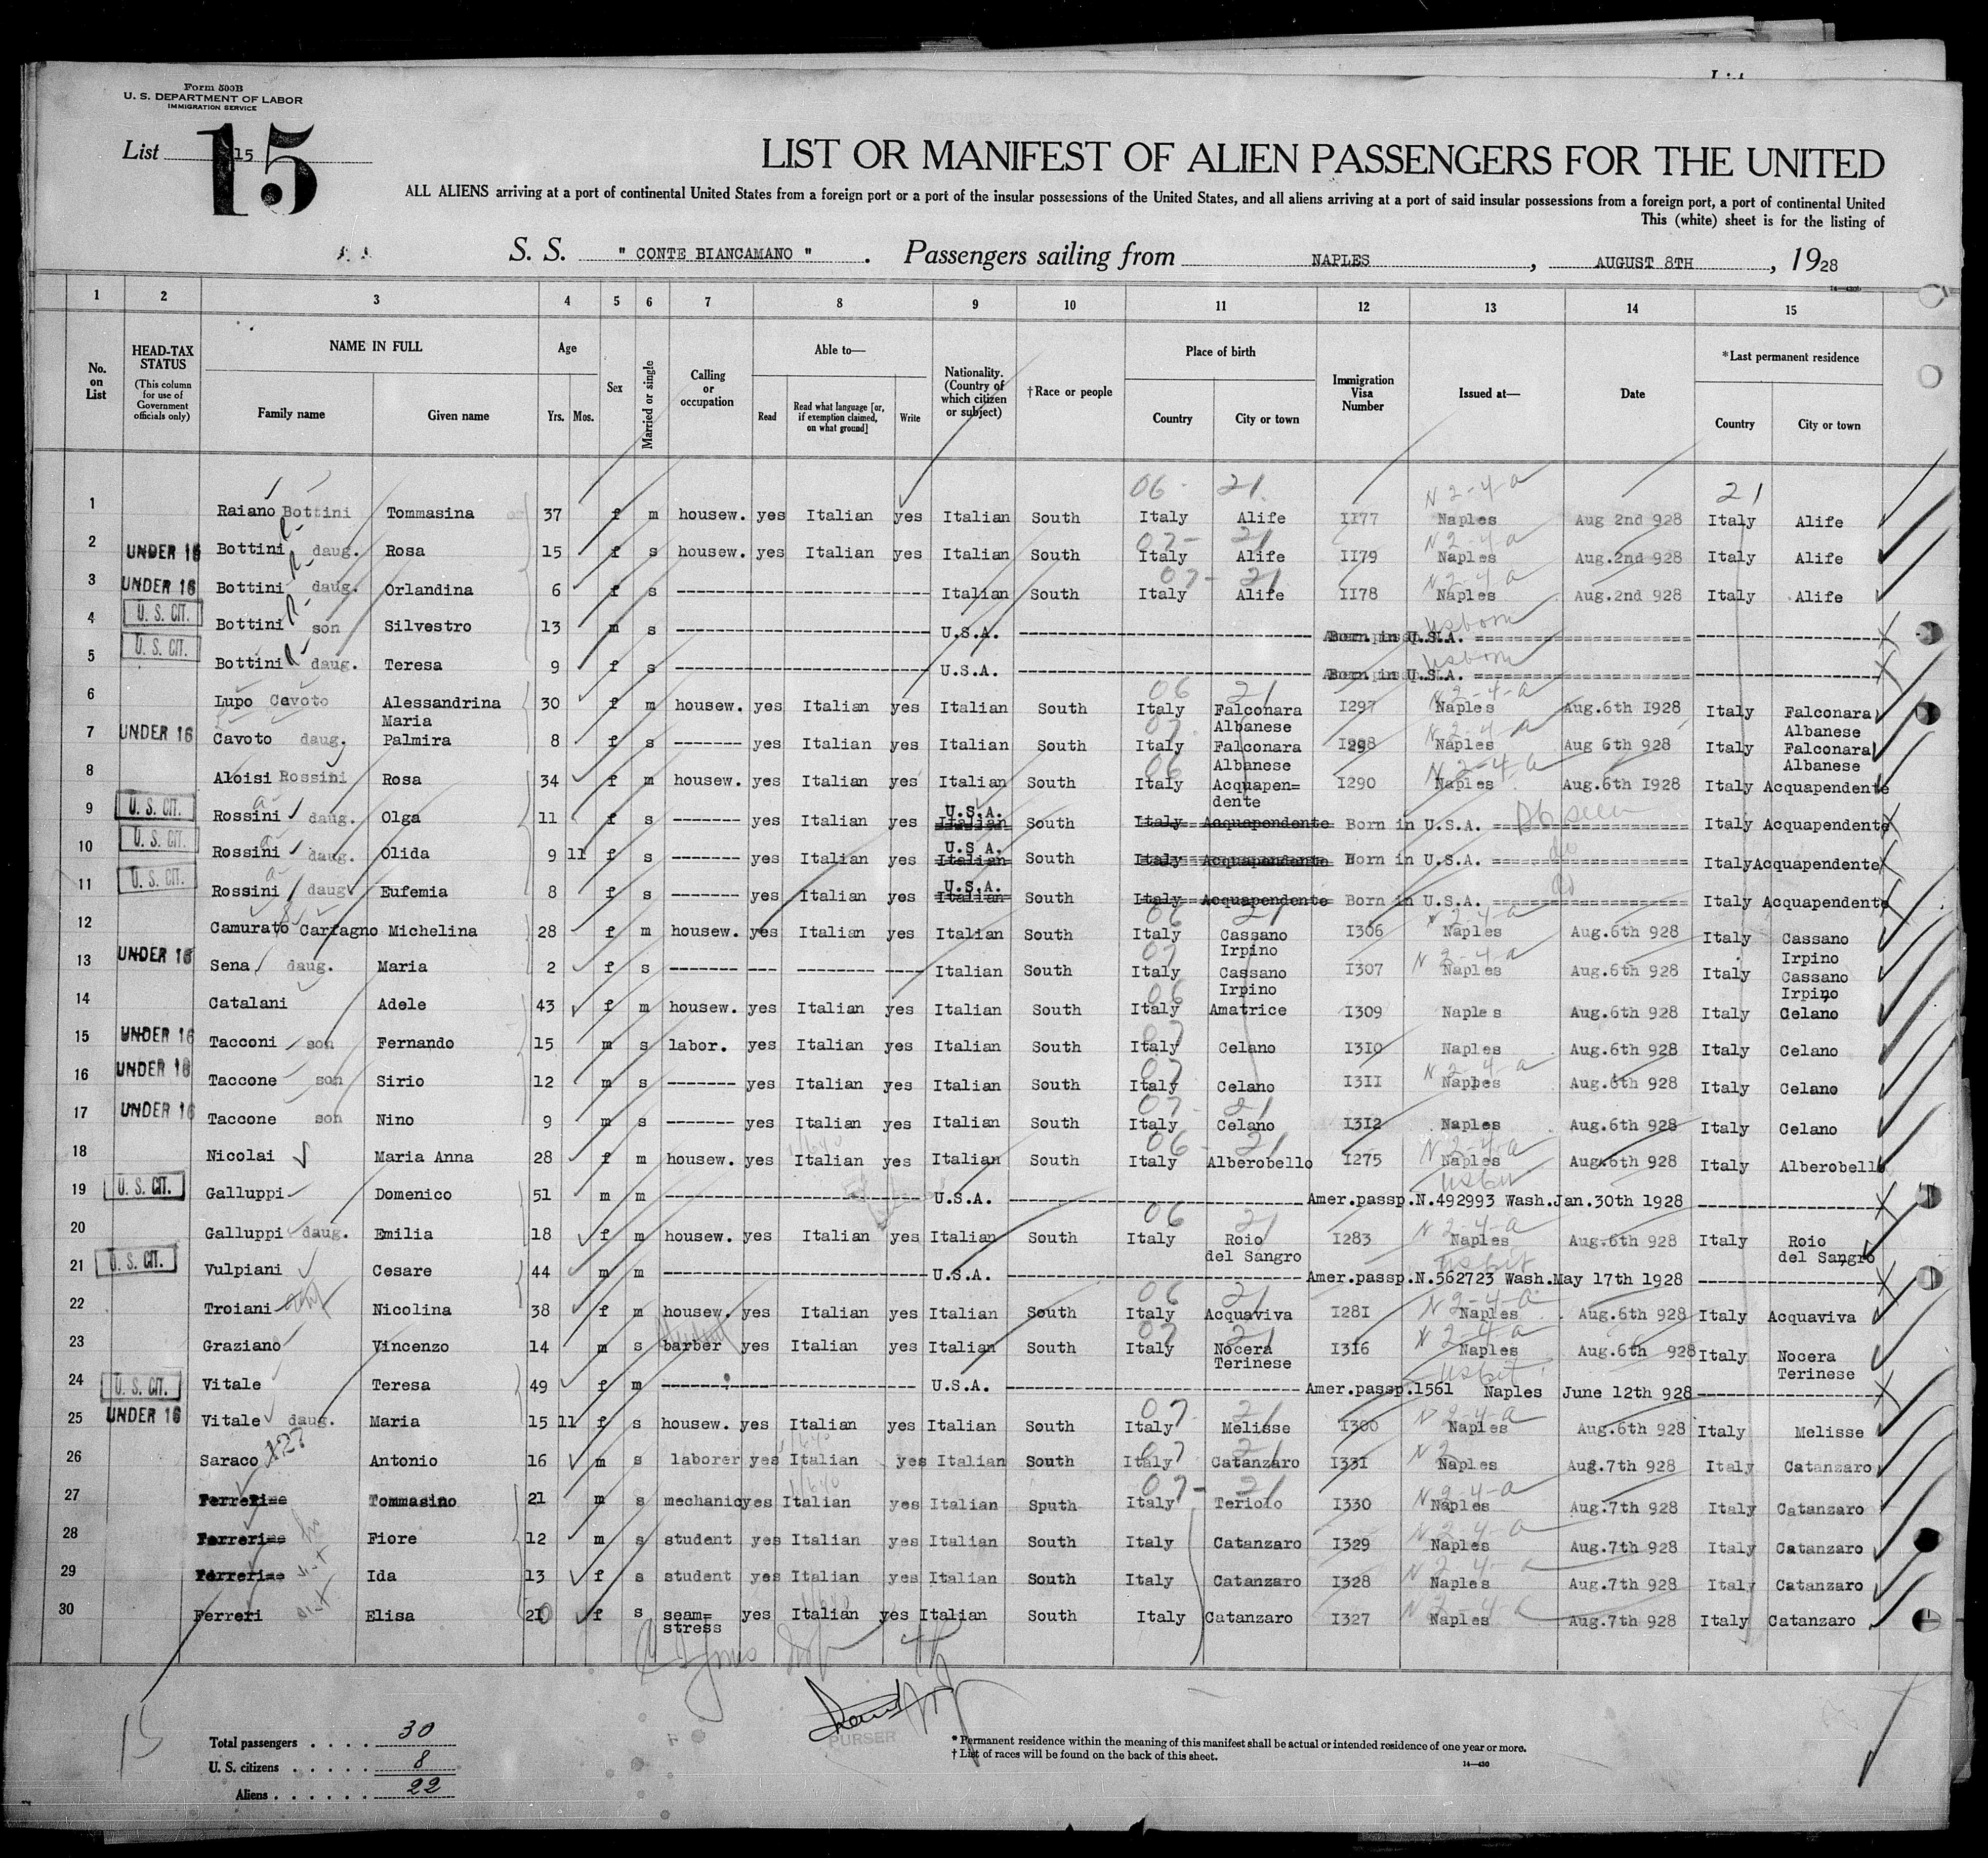 Form 500B
U. S. DEPARTMENT OF LABOR
IMMIGRATION SERVICE
List 15
15
LIST OR MANIFEST OF ALIEN PASSENGERS FOR THE UNITED
ALL ALIENS arriving at a port of continental United States from a foreign port or a port of the insular possessions of the United States, and all aliens arriving at a port of said insular possessions from a foreign port, a port of continental United
This (white) sheet is for the listing of
S. S. " CONTE BIANCAMANO " . Passengers sailing from NAPLES , AUGUST 8TH , 1928
1 2 3 4 5 6 7 8 9 10 11 12 13 14 15
No. on List
HEAD-TAX STATUS (This column for use of Government officials only)
NAME IN FULL Family name Given name
Age Yrs. Mos.
Sex
Married or single
Calling or occupation
Able to— Read Read what language [or, if exemption claimed, on what ground] Write
Nationality. (Country of which citizen or subject)
†Race or people
Place of birth Country City or town
Immigration Visa Number
Issued at—
Date
*Last permanent residence Country City or town
06 21 N 2-4-a 21
1 Raiano Bottini Tommasina 37 f m housew. yes Italian yes Italian South Italy Alife 1177 Naples Aug 2nd 928 Italy Alife
07- 21 N 2-4-a
2 UNDER 16 Bottini daug. Rosa 15 f s housew. yes Italian yes Italian South Italy Alife 1179 Naples Aug.2nd 928 Italy Alife
07- 21 N 2-4-a
3 UNDER 16 Bottini daug. Orlandina 6 f s Italian South Italy Alife 1178 Naples Aug.2nd 928 Italy Alife
4 U. S. CIT. Bottini son Silvestro 13 m s U.S.A. Born in U.S.A. usborn
5 U. S. CIT. Bottini daug. Teresa 9 f s U.S.A. Born in U.S.A. usborn
06 21 N 2-4-a
6 Lupo Cavoto Alessandrina Maria 30 f m housew. yes Italian yes Italian South Italy Falconara Albanese 1297 Naples Aug.6th 1928 Italy Falconara Albanese
07 N 2-4-a
7 UNDER 16 Cavoto daug. Palmira 8 f s yes Italian yes Italian South Italy Falconara Albanese 1298 Naples Aug 6th 928 Italy Falconara Albanese
06 N 2-4-a
8 Aloisi Rossini Rosa 34 f m housew. yes Italian yes Italian South Italy Acquapen= dente 1290 Naples Aug.6th 1928 Italy Acquapendente
9 U. S. CIT. Rossini daug. Olga 11 f s yes Italian yes U.S.A. Italian South Italy Acquapendente Born in U.S.A. Italy Acquapendente
10 U. S. CIT. Rossini daug. Olida 9 11 f s yes Italian yes U.S A. Italian South Italy Acquapendente Born in U.S.A. do Italy Acquapendente
11 U. S. CIT. Rossini daug. Eufemia 8 f s yes Italian yes U.S.A. Italian South Italy Acquapendente Born in U.S.A. do Italy Acquapendente
06 21 2-4-a
12 Camurato Carfagno Michelina 28 f m housew. yes Italian yes Italian South Italy Cassano Irpino 1306 Naples Aug.6th 928 Italy Cassano Irpino
07 N 2-4-a
13 UNDER 16 Sena daug. Maria 2 f s Italian South Italy Cassano Irpino 1307 Naples Aug.6th 928 Italy Cassano Irpino
06
14 Catalani Adele 43 f m housew. yes Italian yes Italian South Italy Amatrice 1309 Naples Aug.6th 928 Italy Celano
07
15 UNDER 16 Tacconi son Fernando 15 m s labor. yes Italian yes Italian South Italy Celano 1310 Naples Aug.6th 928 Italy Celano
07 N 2-4-a
16 UNDER 16 Taccone son Sirio 12 m s yes Italian yes Italian South Italy Celano 1311 Naples Aug.6th 928 Italy Celano
07- 21
17 UNDER 16 Taccone son Nino 9 m s yes Italian yes Italian South Italy Celano 1312 Naples Aug.6th 928 Italy Celano
06- 21 N 2-4-a
18 Nicolai Maria Anna 28 f m housew. yes Italian yes Italian South Italy Alberobello 1275 Naples Aug.6th 928 Italy Alberobello
19 U. S. CIT. Galluppi Domenico 51 m m U.S.A. Amer.passp.N.492993 Wash.Jan.30th 1928
06 21 N 2-4-a
20 Galluppi daug. Emilia 18 f m housew. yes Italian yes Italian South Italy Roio del Sangro 1283 Naples Aug.6th 928 Italy Roio del Sangro
21 U. S. CIT. Vulpiani Cesare 44 m m U.S.A. Amer.passp.N.562723 Wash.May 17th 1928
06 21 N 2-4-a
22 Troiani Nicolina 38 f m housew. yes Italian yes Italian South Italy Acquaviva 1281 Naples Aug.6th 928 Italy Acquaviva
07 21 2-4-a
23 Graziano Vincenzo 14 m s barber yes Italian yes Italian South Italy Nocera Terinese 1316 Naples Aug.6th 928 Italy Nocera Terinese
24 U. S. CIT. Vitale Teresa 49 f m U.S.A. Amer.passp.1561 Naples June 12th 928
07 21 N 2-4-a
25 UNDER 16 Vitale daug. Maria 15 11 f s housew. yes Italian yes Italian South Italy Melisse 1300 Naples Aug.6th 928 Italy Melisse
07 21 N 2
26 Saraco Antonio 16 m s laborer yes Italian yes Italian South Italy Catanzaro 1331 Naples Aug.7th 928 Italy Catanzaro
07- 21 N 2-4-a
27 Ferreri Tommasino 21 m s mechanic yes Italian yes Italian Sputh Italy Teriolo 1330 Naples Aug.7th 928 Italy Catanzaro
N 2-4-a
28 Ferreri Fiore 12 m s student yes Italian yes Italian South Italy Catanzaro 1329 Naples Aug.7th 928 Italy Catanzaro
N 2-4-a
29 Ferreri Ida 13 f s student yes Italian yes Italian South Italy Catanzaro 1328 Naples Aug.7th 928 Italy Catanzaro
N 2-4-a
30 Ferreri Elisa 20 f s seam= stress yes Italian yes Italian South Italy Catanzaro 1327 Naples Aug.7th 928 Italy Catanzaro
PURSER
Total passengers . . . . 30
U. S. citizens . . . . . 8
Aliens . . . . . . 22
* Permanent residence within the meaning of this manifest shall be actual or intended residence of one year or more.
† List of races will be found on the back of this sheet.
14—430